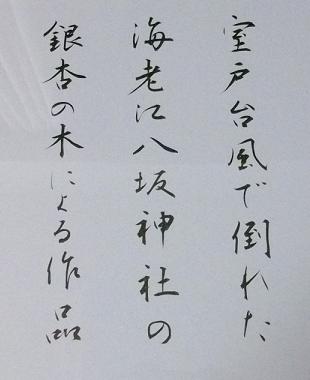 室戸台風で倒れた
海老江八坂神社の
銀杏の木による作品